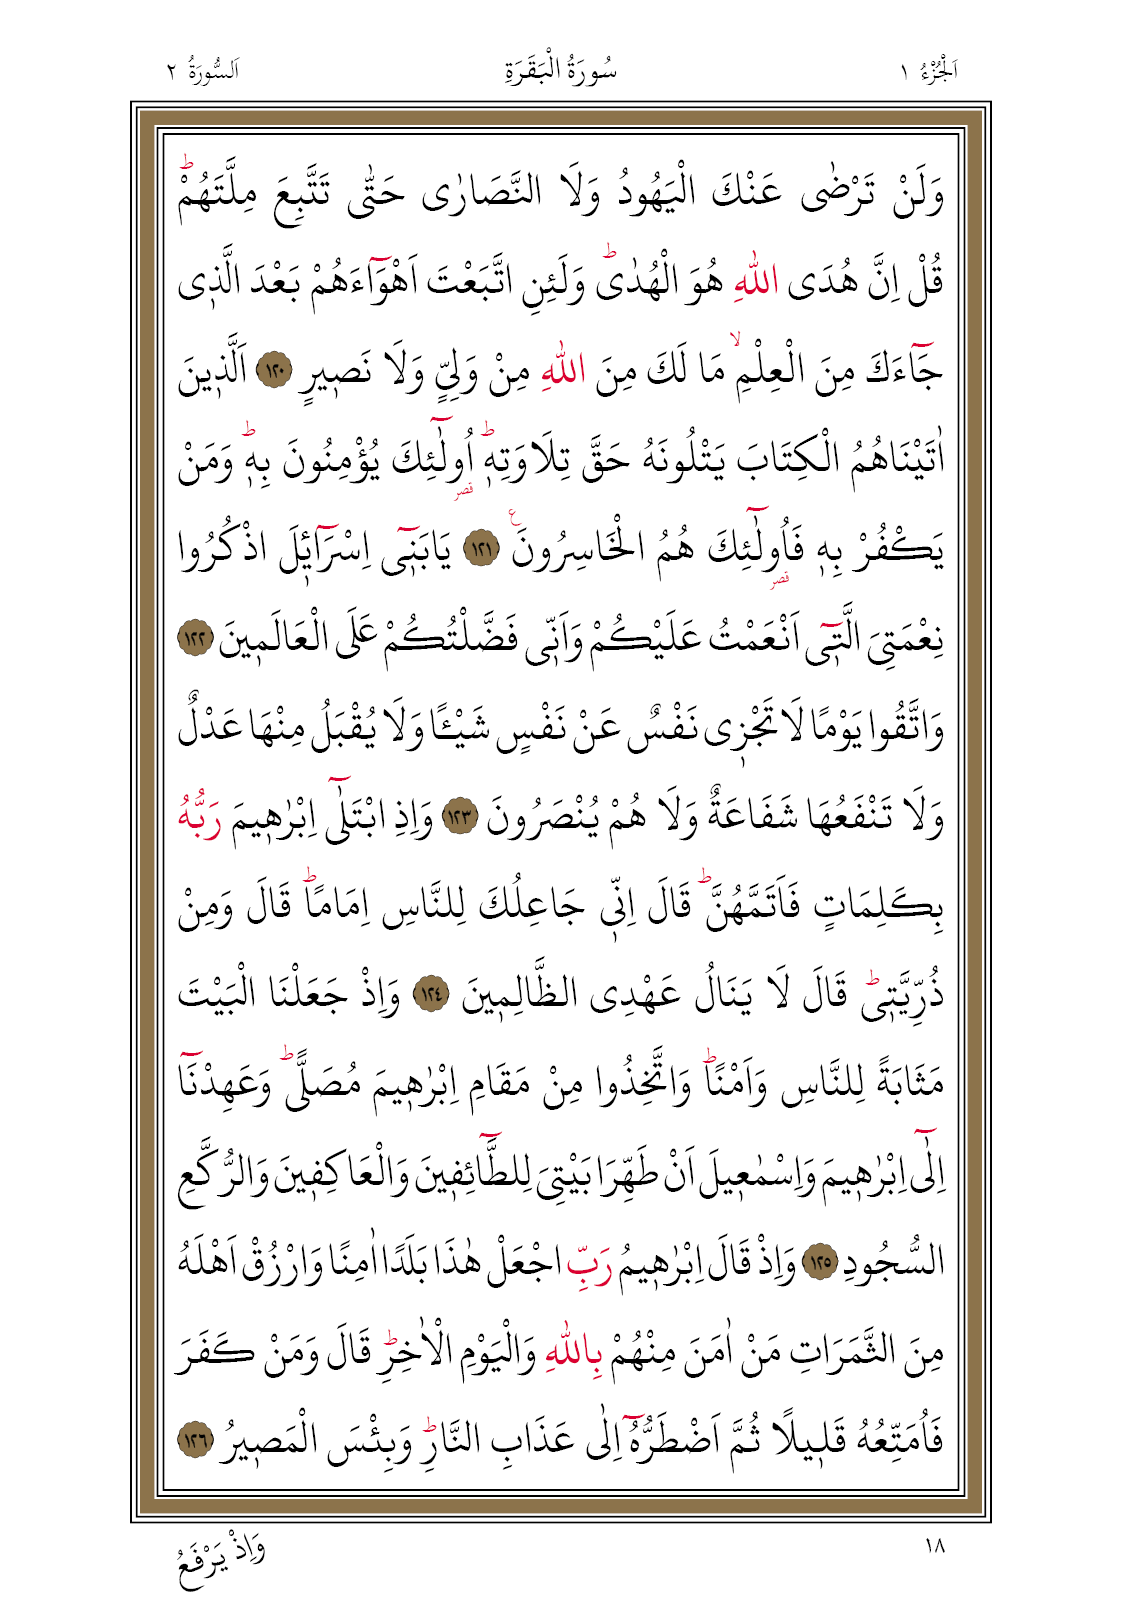 اَلْجُزْءُ ١
سُورَةُ الْبَقَرَةِ
اَلسُّورَةُ ٢
وَلَنْ تَرْضٰى عَنْكَ الْيَهُودُ وَلَا النَّصَارٰى حَتّٰى تَتَّبِعَ مِلَّتَهُمْۜ
قُلْ اِنَّ هُدَى اللّٰهِ هُوَ الْهُدٰىۜ وَلَئِنِ اتَّبَعْتَ اَهْوَٓاءَهُمْ بَعْدَ الَّذ۪ى
جَٓاءَكَ مِنَ الْعِلْمِۙ مَا لَكَ مِنَ اللّٰهِ مِنْ وَلِىٍّ وَلَا نَص۪يرٍ ﴿١٢٠﴾ اَلَّذ۪ينَ
اٰتَيْنَاهُمُ الْكِتَابَ يَتْلُونَهُ حَقَّ تِلَاوَتِه۪ۜ اُولٰٓئِكَ يُؤْمِنُونَ بِه۪ۜ وَمَنْ
قصر
يَكْفُرْ بِه۪ فَاُولٰٓئِكَ هُمُ الْخَاسِرُونَ۟ ﴿١٢١﴾ يَابَن۪ٓى اِسْرَٓائ۪لَ اذْكُرُوا
قصر
نِعْمَتِىَ الَّت۪ٓى اَنْعَمْتُ عَلَيْكُمْ وَاَنّ۪ى فَضَّلْتُكُمْ عَلَى الْعَالَم۪ينَ ﴿١٢٢﴾
وَاتَّقُوا يَوْمًا لَا تَجْز۪ى نَفْسٌ عَنْ نَفْسٍ شَيْـًٔا وَلَا يُقْبَلُ مِنْهَا عَدْلٌ
وَلَا تَنْفَعُهَا شَفَاعَةٌ وَلَا هُمْ يُنْصَرُونَ ﴿١٢٣﴾ وَاِذِ ابْتَلٰٓى اِبْرٰه۪يمَ رَبُّهُ
بِكَلِمَاتٍ فَاَتَمَّهُنَّۜ قَالَ اِنّ۪ى جَاعِلُكَ لِلنَّاسِ اِمَامًاۜ قَالَ وَمِنْ
ذُرِّيَّت۪ىۜ قَالَ لَا يَنَالُ عَهْدِى الظَّالِم۪ينَ ﴿١٢٤﴾ وَاِذْ جَعَلْنَا الْبَيْتَ
مَثَابَةً لِلنَّاسِ وَاَمْنًاۜ وَاتَّخِذُوا مِنْ مَقَامِ اِبْرٰه۪يمَ مُصَلًّىۜ وَعَهِدْنَٓا
اِلٰٓى اِبْرٰه۪يمَ وَاِسْمٰع۪يلَ اَنْ طَهِّرَا بَيْتِىَ لِلطَّٓائِف۪ينَ وَالْعَاكِف۪ينَ وَالرُّكَّعِ
السُّجُودِ ﴿١٢٥﴾ وَاِذْ قَالَ اِبْرٰه۪يمُ رَبِّ اجْعَلْ هٰذَا بَلَدًا اٰمِنًا وَارْزُقْ اَهْلَهُ
مِنَ الثَّمَرَاتِ مَنْ اٰمَنَ مِنْهُمْ بِاللّٰهِ وَالْيَوْمِ الْاٰخِرِۜ قَالَ وَمَنْ كَفَرَ
فَاُمَتِّعُهُ قَل۪يلًا ثُمَّ اَضْطَرُّهُٓ اِلٰى عَذَابِ النَّارِۜ وَبِئْسَ الْمَص۪يرُ ﴿١٢٦﴾
١٨
وَاِذْ يَرْفَعُ